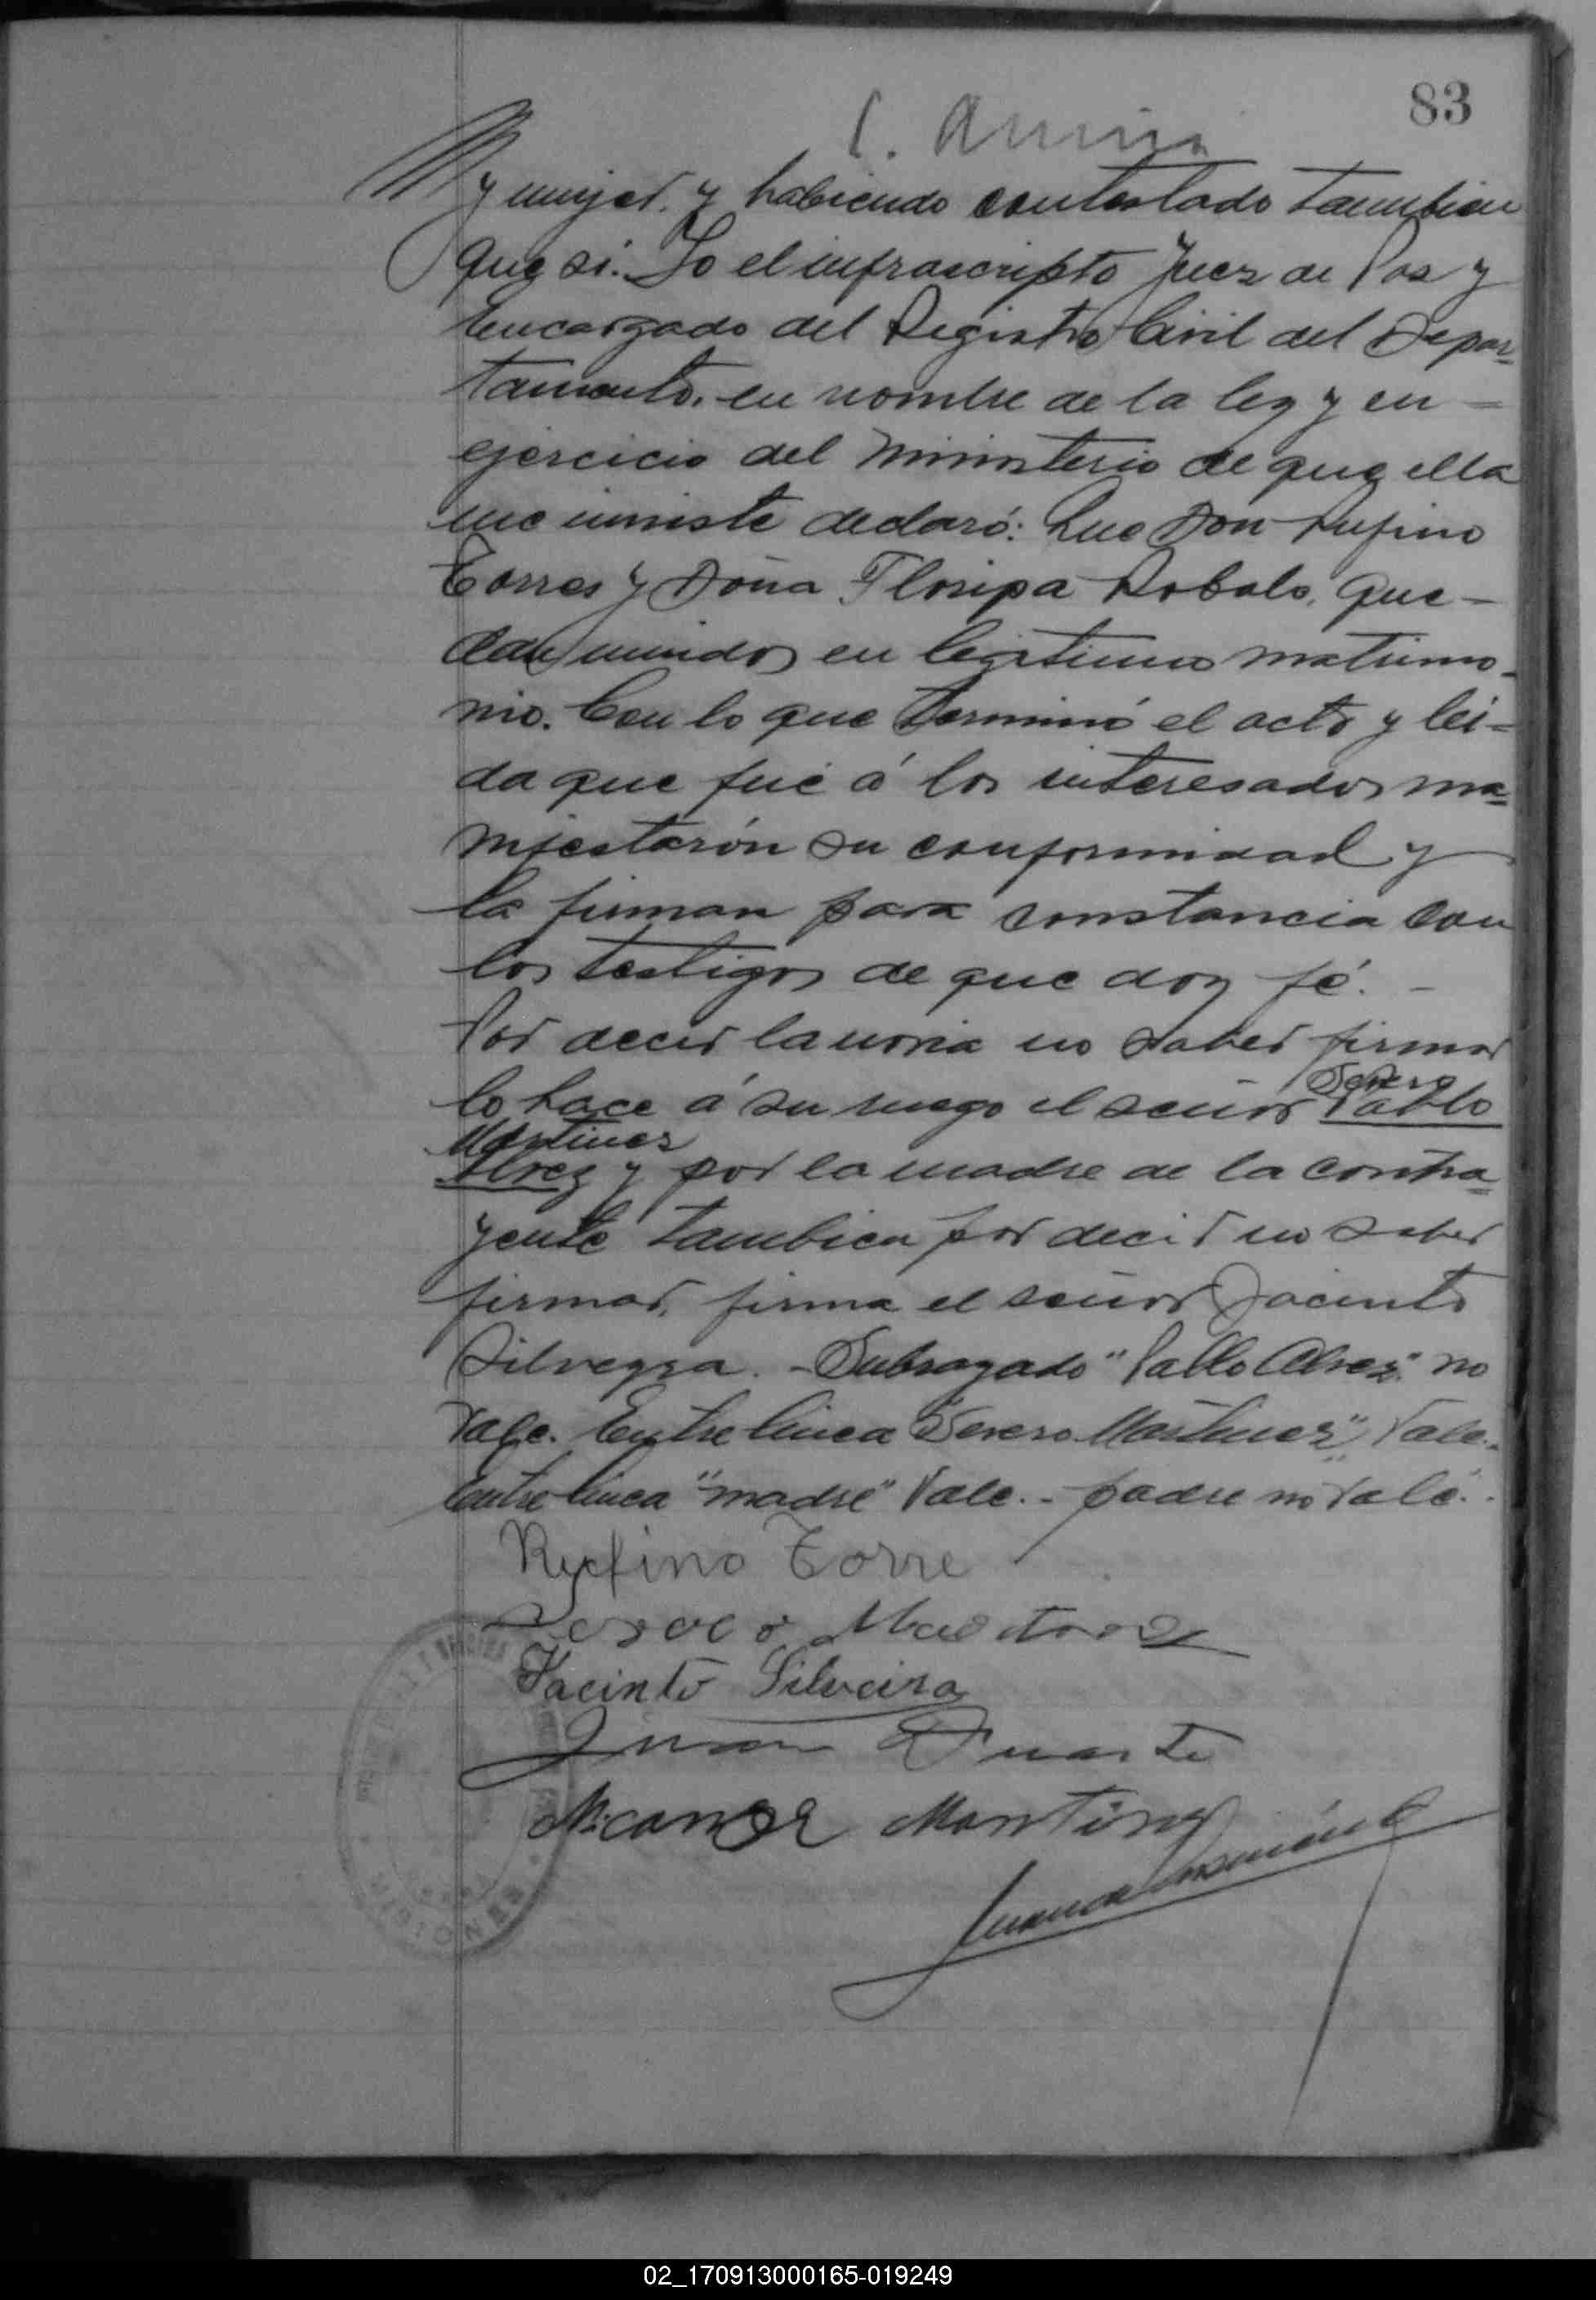 83
y mujer. y habiendo contestado tambien
que si. Yo el infrascripto Juez de Paz y
Encargado del Registro Civil del Depar=
tamento, en nombre de la ley y en -
ejercicio del Ministerio de que ella
me inviste declaró: Que Don Rufino
Torres y Doña Floripa Robalo, que-
dan unidos en legitimo matrimo-
nio. Con lo que terminó el acto y lei=
da que fué á los interesados ma=
nifestarón su conformidad y
la firman para constancia con
los testigos de que doy fé. -
Por decir la novia no saber firmar
lo hace á su ruego el señor Pablo
Severo
Martinez
Alvez y por la madre de la contra=
yente tambien por decir no saber
firmar, firma el señor Jacinto
Silveyra. - Subrayado "Pablo Alvez" no
Vale. Entre linea "Severo Martinez" Vale.-
Entre linea "madre" Vale. - padre no vale. -
Rufino Torre
Jacinto Silveira
Juan Duarte
Nicanor Martinez
MISIONES
02_170913000165-019249